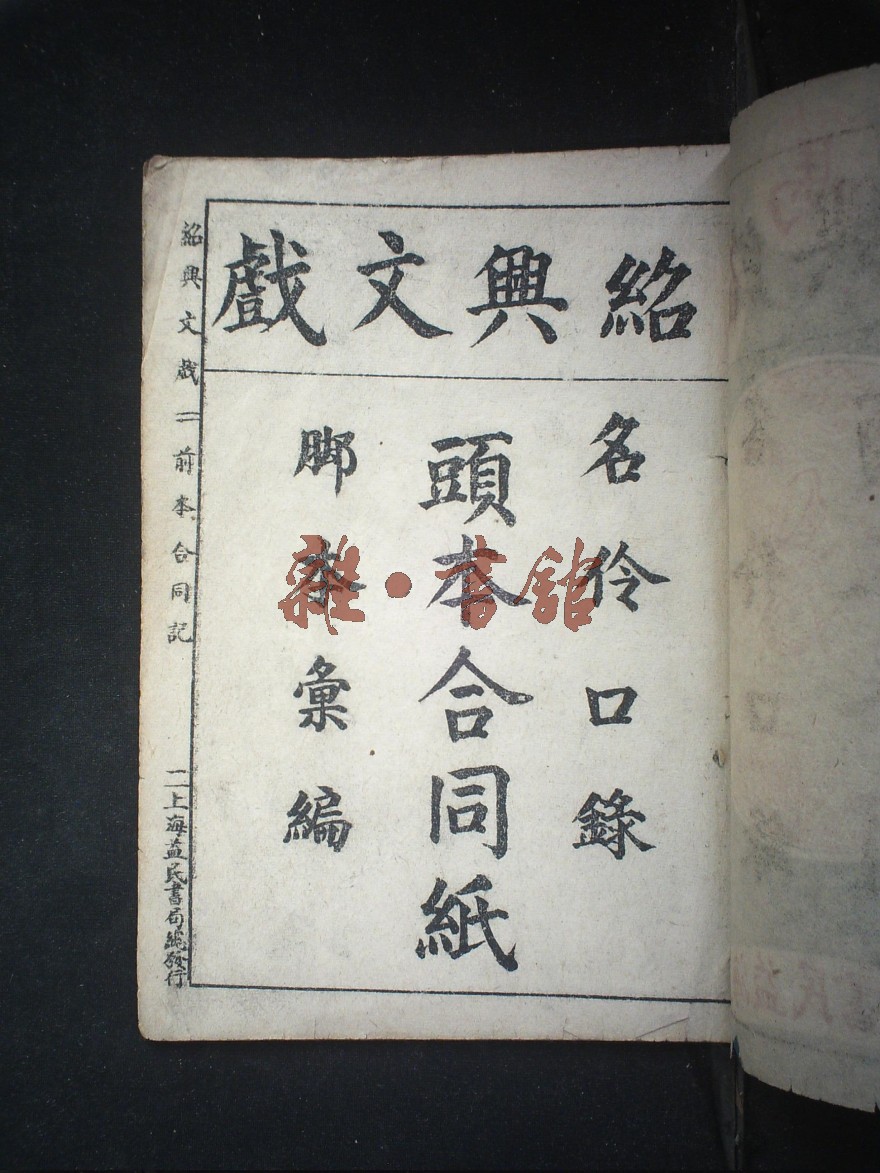 紹興文戲
名伶口錄
頭本合同紙
脚本彙編
紹興文戲 二 前本合同記
二 上海益民書局總發行
雜·書館